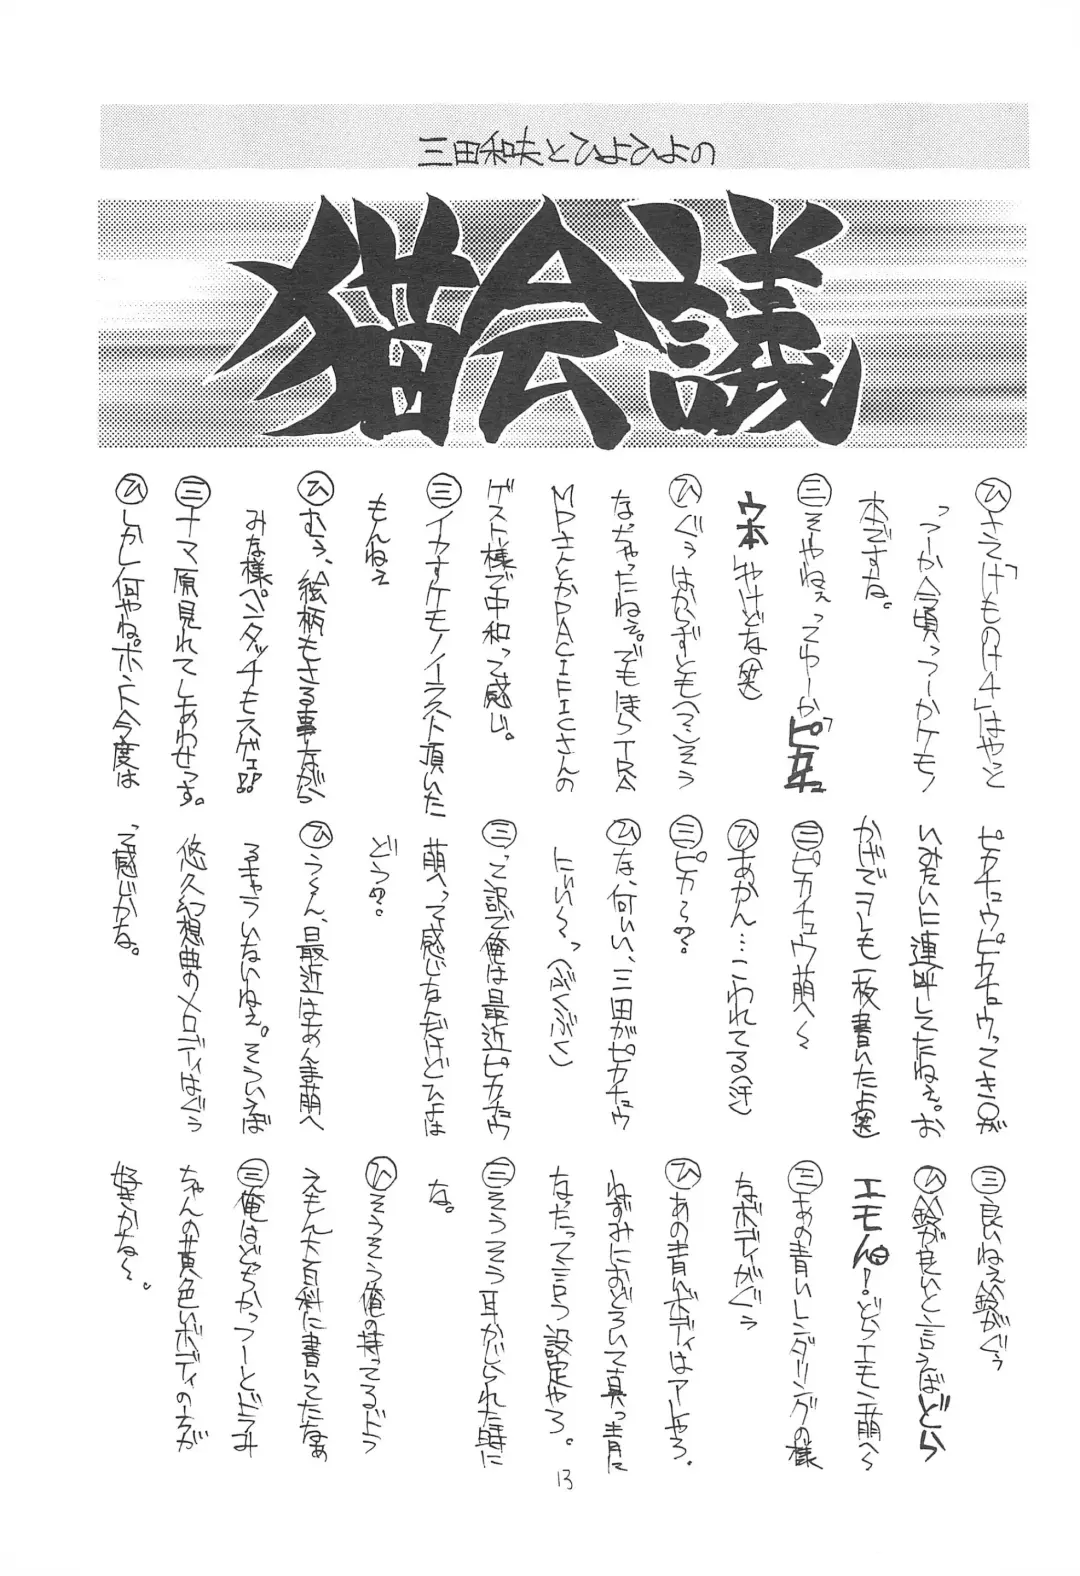 三田和夫とひよひよの
猫会議
ひ さて「けもの4」はやっと
っつーか今頃っつーかケモノ
本ですな。
三 そやねぇってゆーか「ピカチュ
ウ本」やけどな(笑)
ひ ぐぅ はからずとも(^^;)そう
なっちゃったねぇ。でもほらTRA
MPさんとかPACIFICさんの
ゲスト様で中和って感じ。
三 イカすケモノイラスト頂いた
もんねぇ
ひ むぅ、絵柄もさる事ながら
みな様ペンタッチもスゲェ!!
三 ナマ原見れてしあわせっす。
ひ しかし何やね。ホント今度は
ピカチュウピカチュウってき○が
いみたいに連呼してたねぇ。お
かげでヲレも一枚書いたよ(笑)
三 ピカチュウ萌へ〜
ひ あかん…こわれてる(汗)
三 ピカ〜?
ひ な、何ぃい、三田がピカチュウ
にぃい〜っ(ぶくぶく)
三 って訳で俺は最近ピカチュウ
萌へって感じなんだけどひよは
どう?
ひ う〜ん、最近はあんま萌へ
るキャラいないねぇ。そういえば
悠久幻想曲のメロディはぐぅ
って感じかな。
三 良いねぇ鈴がぐぅ
ひ 鈴が良いと言うば どら
エモん!どらエモン萌へ〜
三 あの青いレンダリングの様
なボディがぐぅ
ひ あの青いボディはアレやろ、
ねずみにおどろいて真っ青に
なったって言う設定やろ。
三 そうそう耳かじられた時に
な。
ひ そうそう俺の持ってるドラ
えもん大百科に書いてたなぁ
三 俺はどちかっつーとドラみ
ちゃんの黄色いボディの方が
好きかな〜。
13